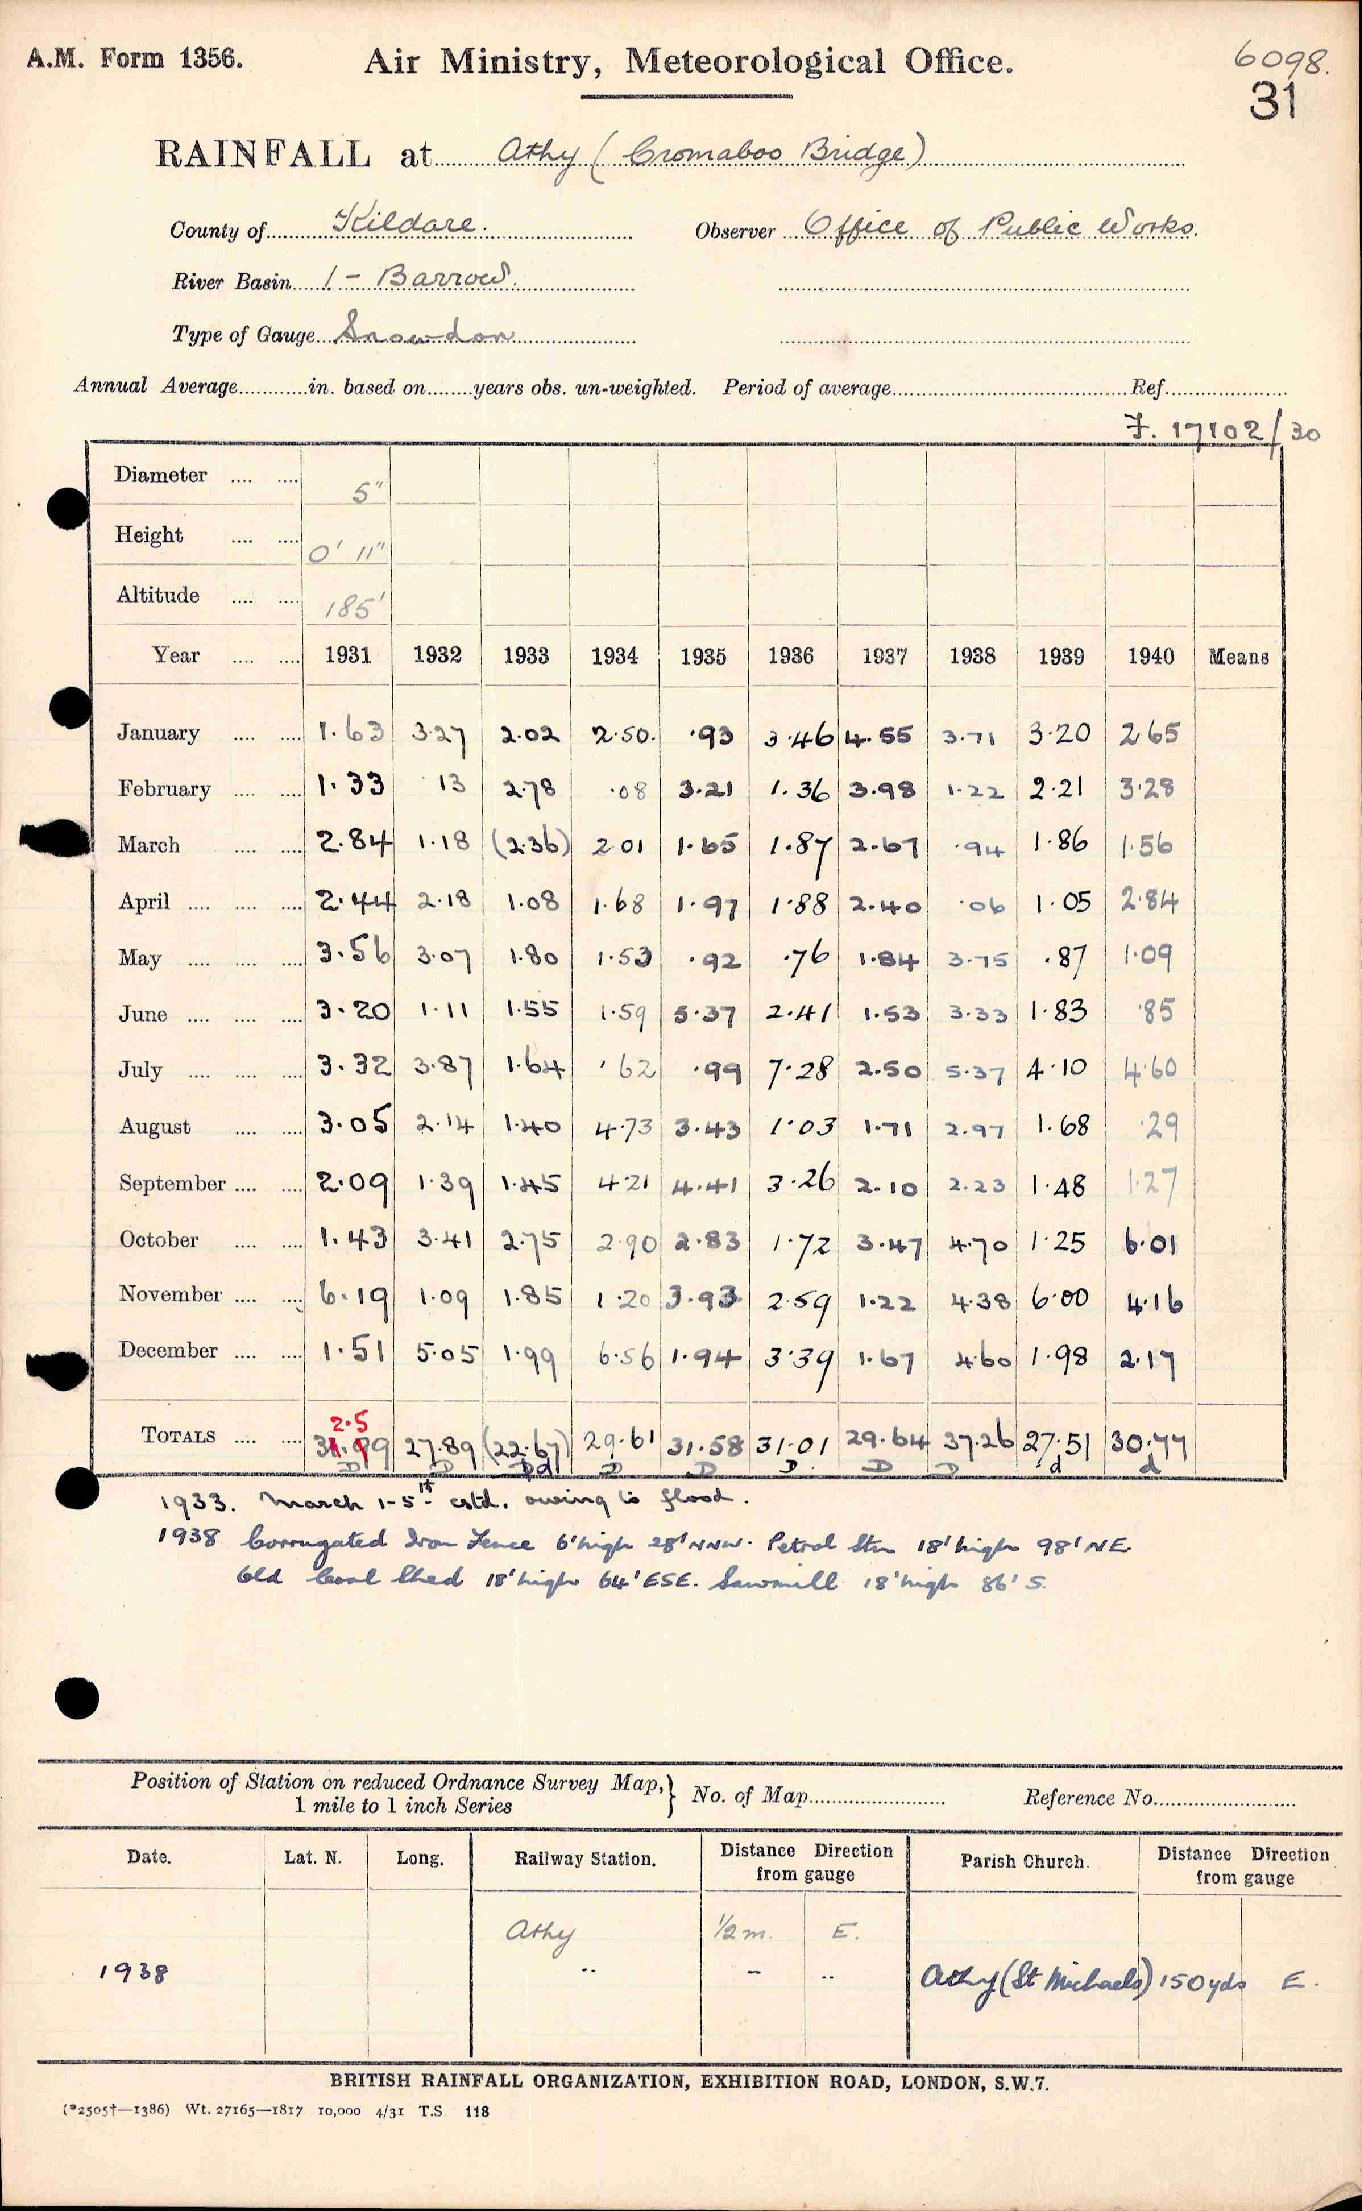 A.M. Form 1356.
Air Ministry, Meteorological Office.
6098.
31
RAINFALL at Athy (Cromaboo Bridge)
County of Kildare. Observer Office of Public Works.
River Basin 1 - Barrow.
Type of Gauge Snowdon
Annual Average............in. based on........years obs. un-weighted. Period of average........................................Ref.....................
F. 17102/30
Diameter .... .... 5"
Height .... .... 0' 11"
Altitude .... .... 185'
Year .... .... 1931 1932 1933 1934 1935 1936 1937 1938 1939 1940 Means
January .... .... 1.63 3.27 2.02 2.50. .93 3.46 4.55 3.71 3.20 2.65
February .... .... 1.33 .13 2.78 .08 3.21 1.36 3.98 1.22 2.21 3.28
March .... .... 2.84 1.18 (2.36) 2.01 1.65 1.87 2.67 .94 1.86 1.56
April .... .... .... 2.44 2.18 1.08 1.68 1.97 1.88 2.40 .06 1.05 2.84
May .... .... .... 3.56 3.07 1.80 1.53 .92 .76 1.84 3.75 .87 1.09
June .... .... .... 3.20 1.11 1.55 1.59 5.37 2.41 1.53 3.33 1.83 .85
July .... .... .... 3.32 3.87 1.64 .62 .99 7.28 2.50 5.37 4.10 4.60
August .... .... 3.05 2.14 1.40 4.73 3.43 1.03 1.71 2.97 1.68 .29
September .... .... 2.09 1.39 1.45 4.21 4.41 3.26 2.10 2.23 1.48 1.27
October .... .... 1.43 3.41 2.75 2.90 2.83 1.72 3.47 4.70 1.25 6.01
November .... .... 6.19 1.09 1.85 1.20 3.93 2.59 1.22 4.38 6.00 4.16
December .... .... 1.51 5.05 1.99 6.56 1.94 3.39 1.67 4.60 1.98 2.17
2.5
TOTALS .... .... 31.99 27.89 (22.67) 29.61 31.58 31.01 29.64 37.26 27.51 30.77
D D Dd D D D. D D d d
1933. March 1-5th estd. owing to flood.
1938 Corrugated Iron Fence 6' high 28' NNW. Petrol Stn 18' high 98' NE.
Old Coal Shed 18' high 64' ESE. Sawmill 18' high 86' S.
Position of Station on reduced Ordnance Survey Map, } No. of Map......................... Reference No..........................
1 mile to 1 inch Series
Date. Lat. N. Long. Railway Station. Distance Direction from gauge Parish Church. Distance Direction from gauge
Athy 1/2 m. E.
1938 " - " Athy (St Michaels) 150 yds E.
BRITISH RAINFALL ORGANIZATION, EXHIBITION ROAD, LONDON, S.W.7.
(*2505†—1386) Wt. 27165—1817 10,000 4/31 T.S 118